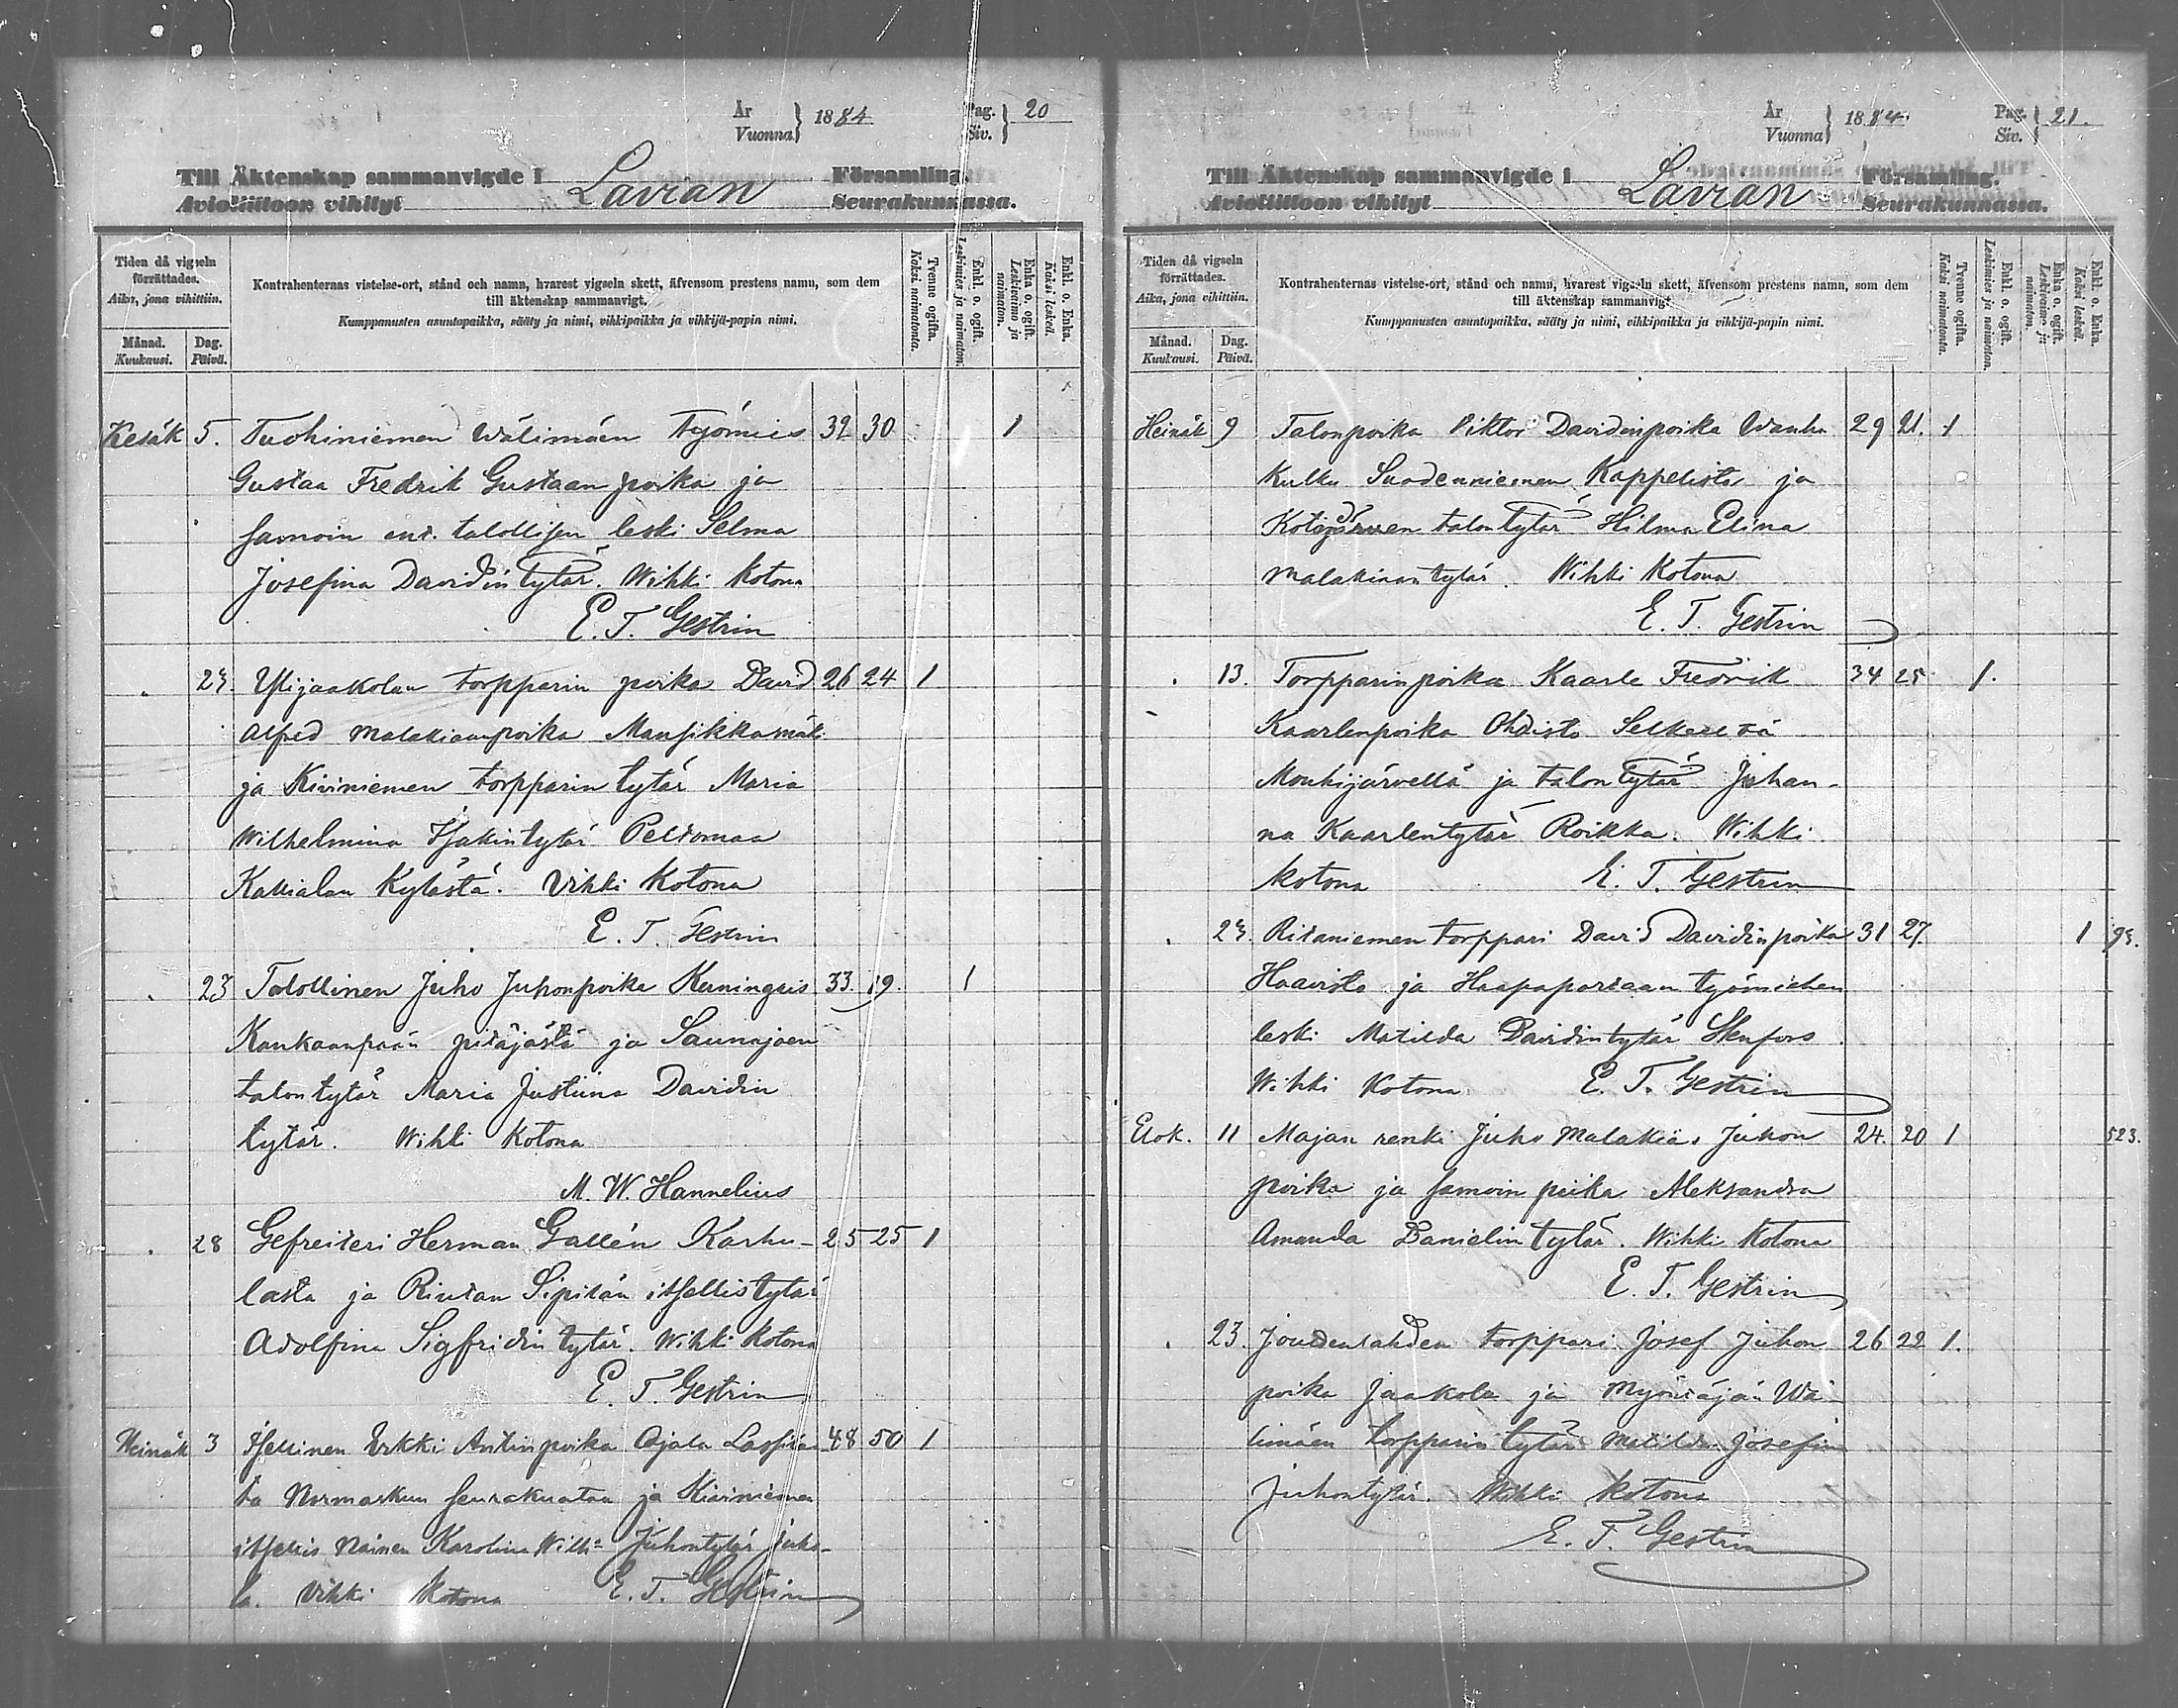 År
Vuonna } 1884
Pag.
Siv. } 20
Till Äktenskap sammanvigde i Lavian Församling.
Avioliittoon vihityt Seurakunnassa.
Tiden då vigseln förrättades.
Aika, jona vihittiin.
Månad.
Kuukausi.
Dag.
Päivä.
Kontrahenternas vistelse-ort, stånd och namn, hvarest vigseln skett, äfvensom prestens namn, som dem
till äktenskap sammanvigt.
Kumppanusten asuntopaikka, sääty ja nimi, vihkipaikka ja vihkijä-papin nimi.
Tvenne ogifta.
Kaksi naimatonta.
Enkl. o. ogift.
Leskimies ja naimaton.
Enka o. ogift.
Leskivaimo ja naimaton.
Enkl. o. Enka.
Kaksi leskeä.
Kesäk 5. Tuohiniemen Wälimäen työmies 32 30 1
Gustaa Fredrik Gustaan poika ja
samoin ent. talollisen leski Selma
Josefina Davidin tytär. Wihki kotona
E. T. Gestrin
" 24. Ylijaakolan torpparin poika David 26 24 1
Alfred Malakiaanpoika Mansikkamäki
ja Kiviniemen torpparin tytär Maria
Wilhelmina Isakintytär Peltomaa
Kallialan Kylästä. Vihki Kotona
E. T. Gestrin
" 23 Talollinen Juho Juhonpoika 33. 19. 1
Kankaanpään pitäjästä ja Saunajoen
talon tytär Maria Justiina Davidin
tytär. Wihki Kotona
M. W. Hannelius
" 28 Gefreiteri Herman Gallén Karhu- 25 25 1
lasta ja Riutan Sipilän itsellistytär
Adolfina Sigfridin tytär. Wihki Kotona
E. T. Gestrin
Heinäk 3 Itsellinen Erkki Antinpoika Ojala 48 50 1
ta Normarkun seurakuntaa ja Kiviniemen
itsellis Nainen Karolina Wilh:a Juhontytär Juho-
la. Vihki Kotona E. T. Gestrin
År
Vuonna } 1884.
Pag.
Siv. } 21.
Till Äktenskap sammanvigde i Lavian Församling.
Avioliittoon vihityt Seurakunnassa.
Tiden då vigseln förrättades.
Aika, jona vihittiin.
Månad.
Kuukausi.
Dag.
Päivä.
Kontrahenternas vistelse-ort, stånd och namn, hvarest vigseln skett, äfvensom prestens namn, som dem
till äktenskap sammanvigt.
Kumppanusten asuntopaikka, sääty ja nimi, vihkipaikka ja vihkijä-papin nimi.
Tvenne ogifta.
Kaksi naimatonta.
Enkl. o. ogift.
Leskimies ja naimaton.
Enka o. ogift.
Leskivaimo ja naimaton.
Enkl. o. Enka.
Kaksi leskeä.
Heinäk 9 Talonpoika Viktor Davidinpoika Wanha 29 21. 1
Kulku Suodenniemen Kappelista ja
talon tytär Hilma Elina
Malakiaan tytär. Wihki Kotona
E. T. Gestrin
" 13. Torpparinpoika Kaarle Fredrik 34 25 1.
Kaarlenpoika Ohdisto
Mouhijärvellä ja talon tytär Johan-
na Kaarlentytär Roikka. Wihki
kotona E. T. Gestrin
" 24. Ritaniemen torppari David Davidinpoika 31 27. 1
Haavisto ja työmiehen
leski Matilda Davidintytär Stenfors
Wihki Kotona E. T. Gestrin
Elok. 11 Majan renki Juho Malakias Juhon 24. 20 1 523.
poika ja samoin piika Aleksandra
Amanda Danielin tytär. Wihki Kotona
E. T. Gestrin
" 23. torppari Josef Juhon 26 22 1.
poika Jaakola ja Myöntäjän Wä-
limäen torpparin tytär Matilda Josefina
Juhontytär. Wihki kotona
E. T. Gestrin